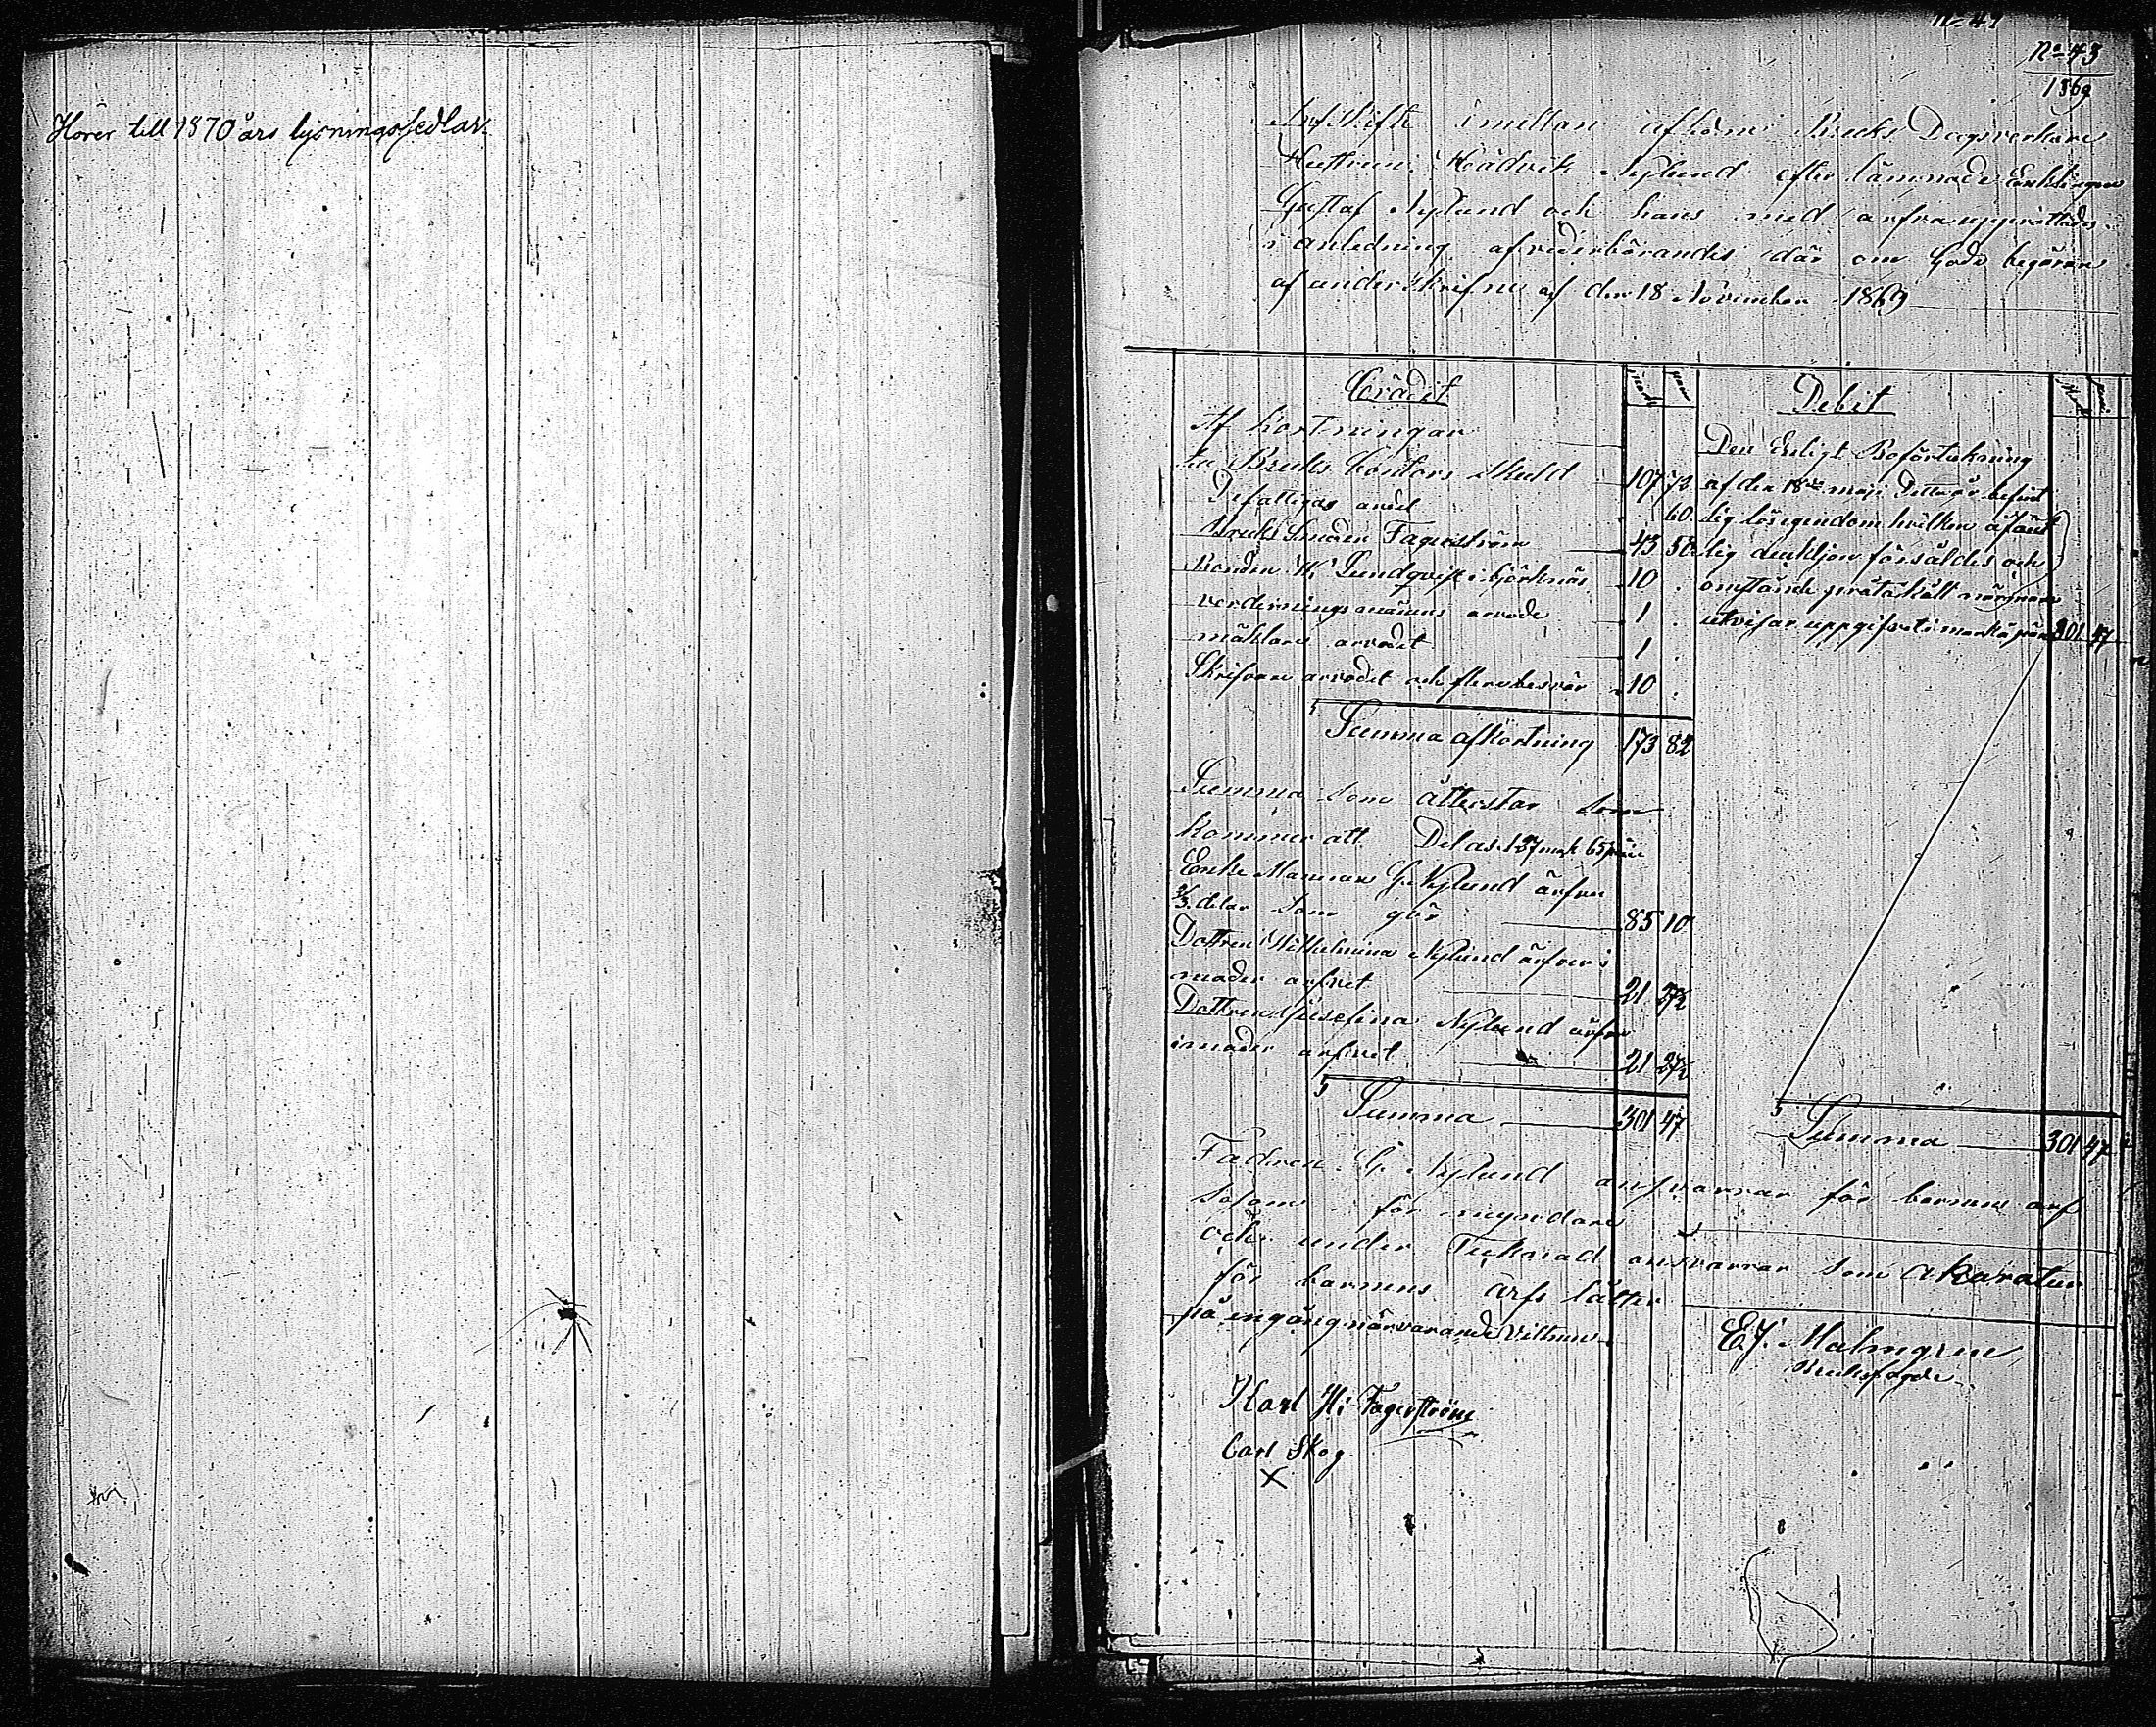 Hörer till 1870 års lysningssedlar.
No 47
No 43
1869
Arfskifte imellan aflidne Bruks Dagsverkare
Hustrun Hädvik Nylund efter lämnade Enklingen
Gustaf Nylund och hans med arfva upprättades
i anledning af vederbörandes där om Gode begäran
af underskrifne af den 18 November 1869
Crädit
Mark
Penni
Af kortningar
Bruks Contors skuld 107 72
Defattigas andel 60.
Bruks Smeden Fagerström 43 50.
Bonden H. Lundqvist i Björknäs 10 .
verderingsmännens arvode 1 .
mäklare arvodet 1 .
Skrifvare arvodet och flere besvär 10 .
Summa afkortning 173 82
Summa som återstår som
kommer att Delas 127 mark 65 peni
Enke Mannen G. Nylund ärfver
2/3. delar som gör 85 10
Dottren Wilhelmina Nylund ärfver i
moder arfvet 21 27½
Dottren Jusefina Nylund ärfver
i moder arfvet 21 27½
Summa 301 47
Debit
Mark
Penni
Den Enligt Boförtekning
af den 18de maji Detta år befint
lig lösegendom hvilken å fänt
lig auktjon försäldes och
omstånde protåkåll närmare
utvisar uppgifvet i mark å peni 301 47
Summa 301 47
Fadren G. Nylund ansvarrar för barnens arf
såsom för myndare
och under Tecknad ansvarrar som akuratur
för barnens arfs låtter
på engång närvarande Vittnen
E. J. Malmgren
Bruksfogde
Karl H. Fagerström
Carl Skog.
X